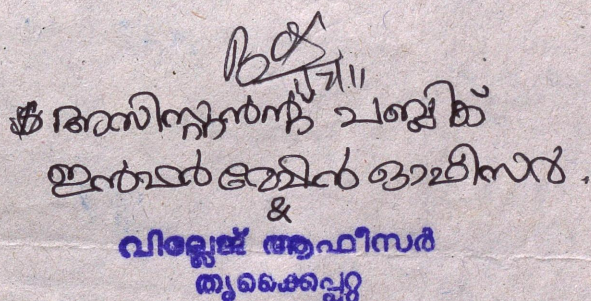 അസിസ്റ്റൻന്റ് പബ്ലിക്
ഇൻഫർമേഷൻ ഓഫീസർ.
&
വില്ലേജ് ആഫീസർ
തൃക്കൈപ്പറ്റ